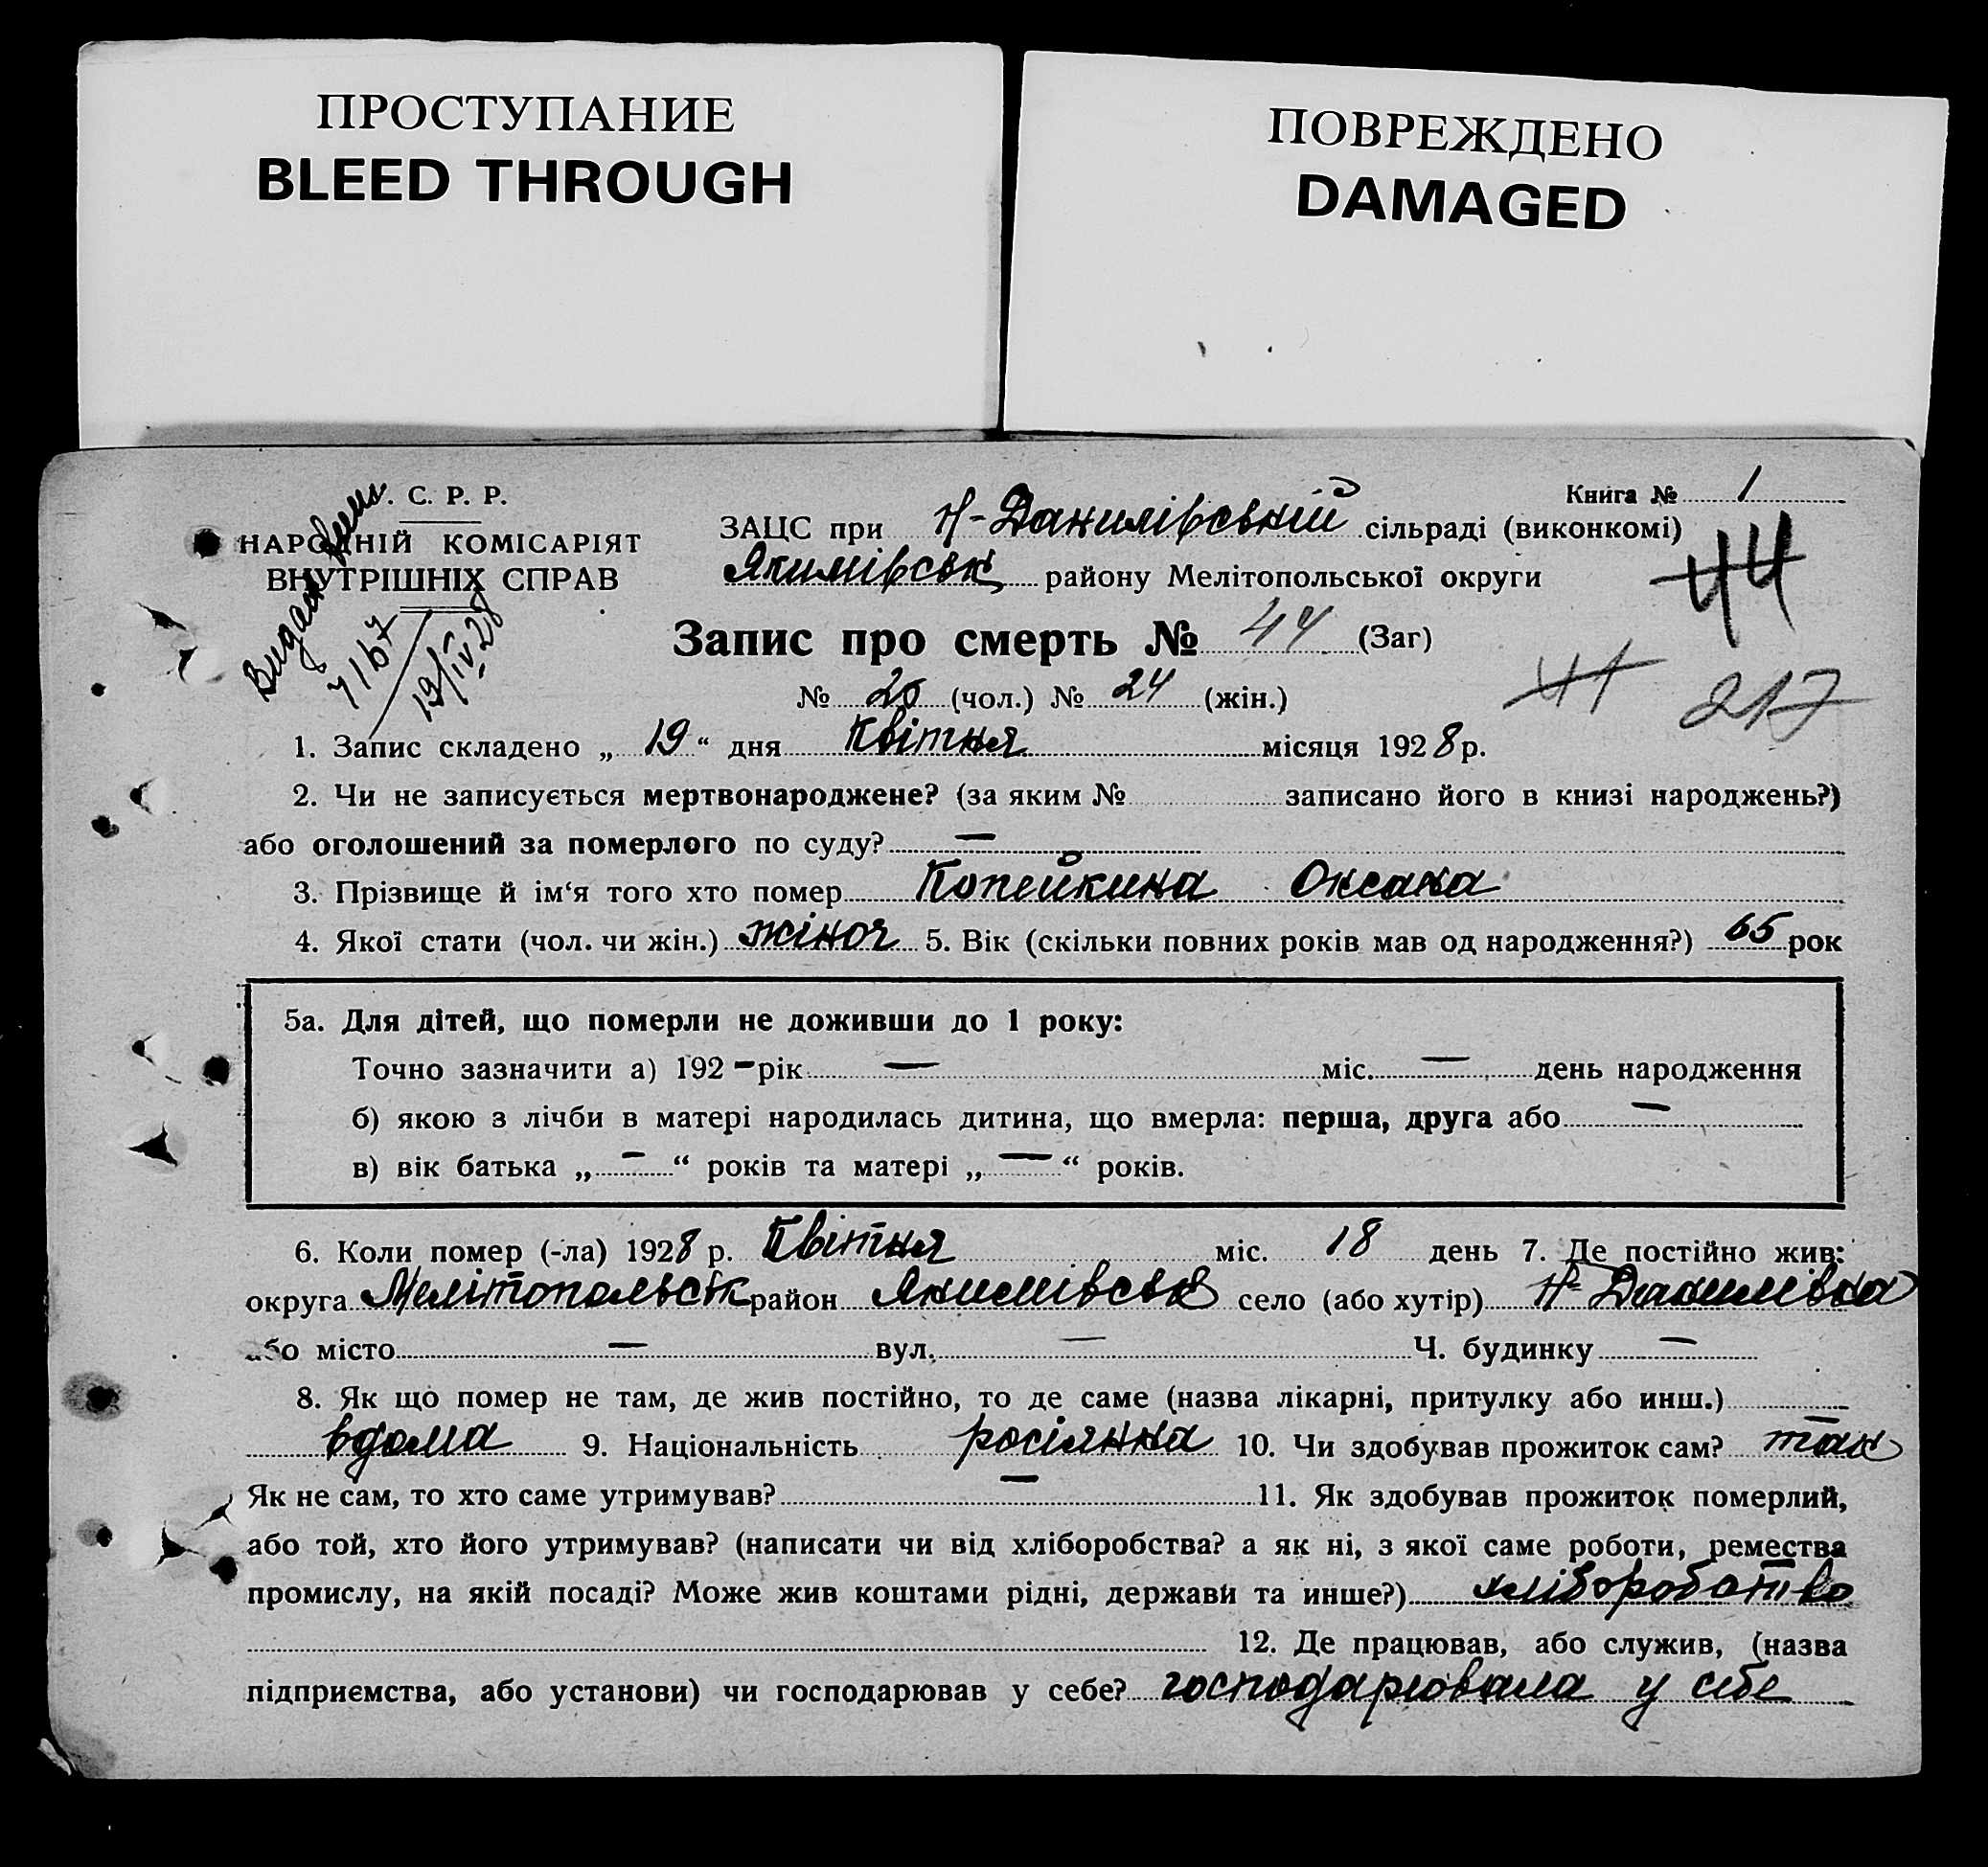 ПРОСТУПАНИЕ
BLEED THROUGH
ПОВРЕЖДЕНО
DAMAGED
. С. Р. Р.
НАРОДНІЙ КОМІСАРІЯТ
ВНУТРІШНІХ СПРАВ
19/IV 28
Книга № 1
ЗАЦС при Н-Данилівській сільраді (виконкомі)
Якимівськ району Мелітопольської округи
44
Запис про смерть № 44 (Заг)
44 217
№ 20 (чол.) № 24 (жін.)
1. Запис складено „ 19 “ дня Квітня місяця 1928 р.
2. Чи не записується мертвонароджене? (за яким № записано його в книзі народжень?)
або оголошений за померлого по суду? —
3. Прізвище й ім‘я того хто помер Копейкина Оксана
4. Якої стати (чол. чи жін.) жіноч 5. Вік (скільки повних років мав од народження?) 65 рок
5а. Для дітей, що померли не доживши до 1 року:
Точно зазначити а) 192 – рік — міс. — день народження
б) якою з лічби в матері народилась дитина, що вмерла: перша, друга або —
в) вік батька „ – “ років та матері „ — “ років.
6. Коли помер (-ла) 1928 р. Квітня міс. 18 день 7. Де постійно жив:
округа Мелітопольськ район Якимівськ село (або хутір) Н-Данилівка
або місто — вул. — Ч. будинку —
8. Як що помер не там, де жив постійно, то де саме (назва лікарні, притулку або инш.)
вдома 9. Національність росіянка 10. Чи здобував прожиток сам? так
Як не сам, то хто саме утримував? — 11. Як здобував прожиток померлий,
або той, хто його утримував? (написати чи від хліборобства? а як ні, з якої саме роботи, ремества
промислу, на якій посаді? Може жив коштами рідні, держави та инше?) хліборобство
12. Де працював, або служив, (назва
підприємства, або установи) чи господарював у себе? господарювала у себе